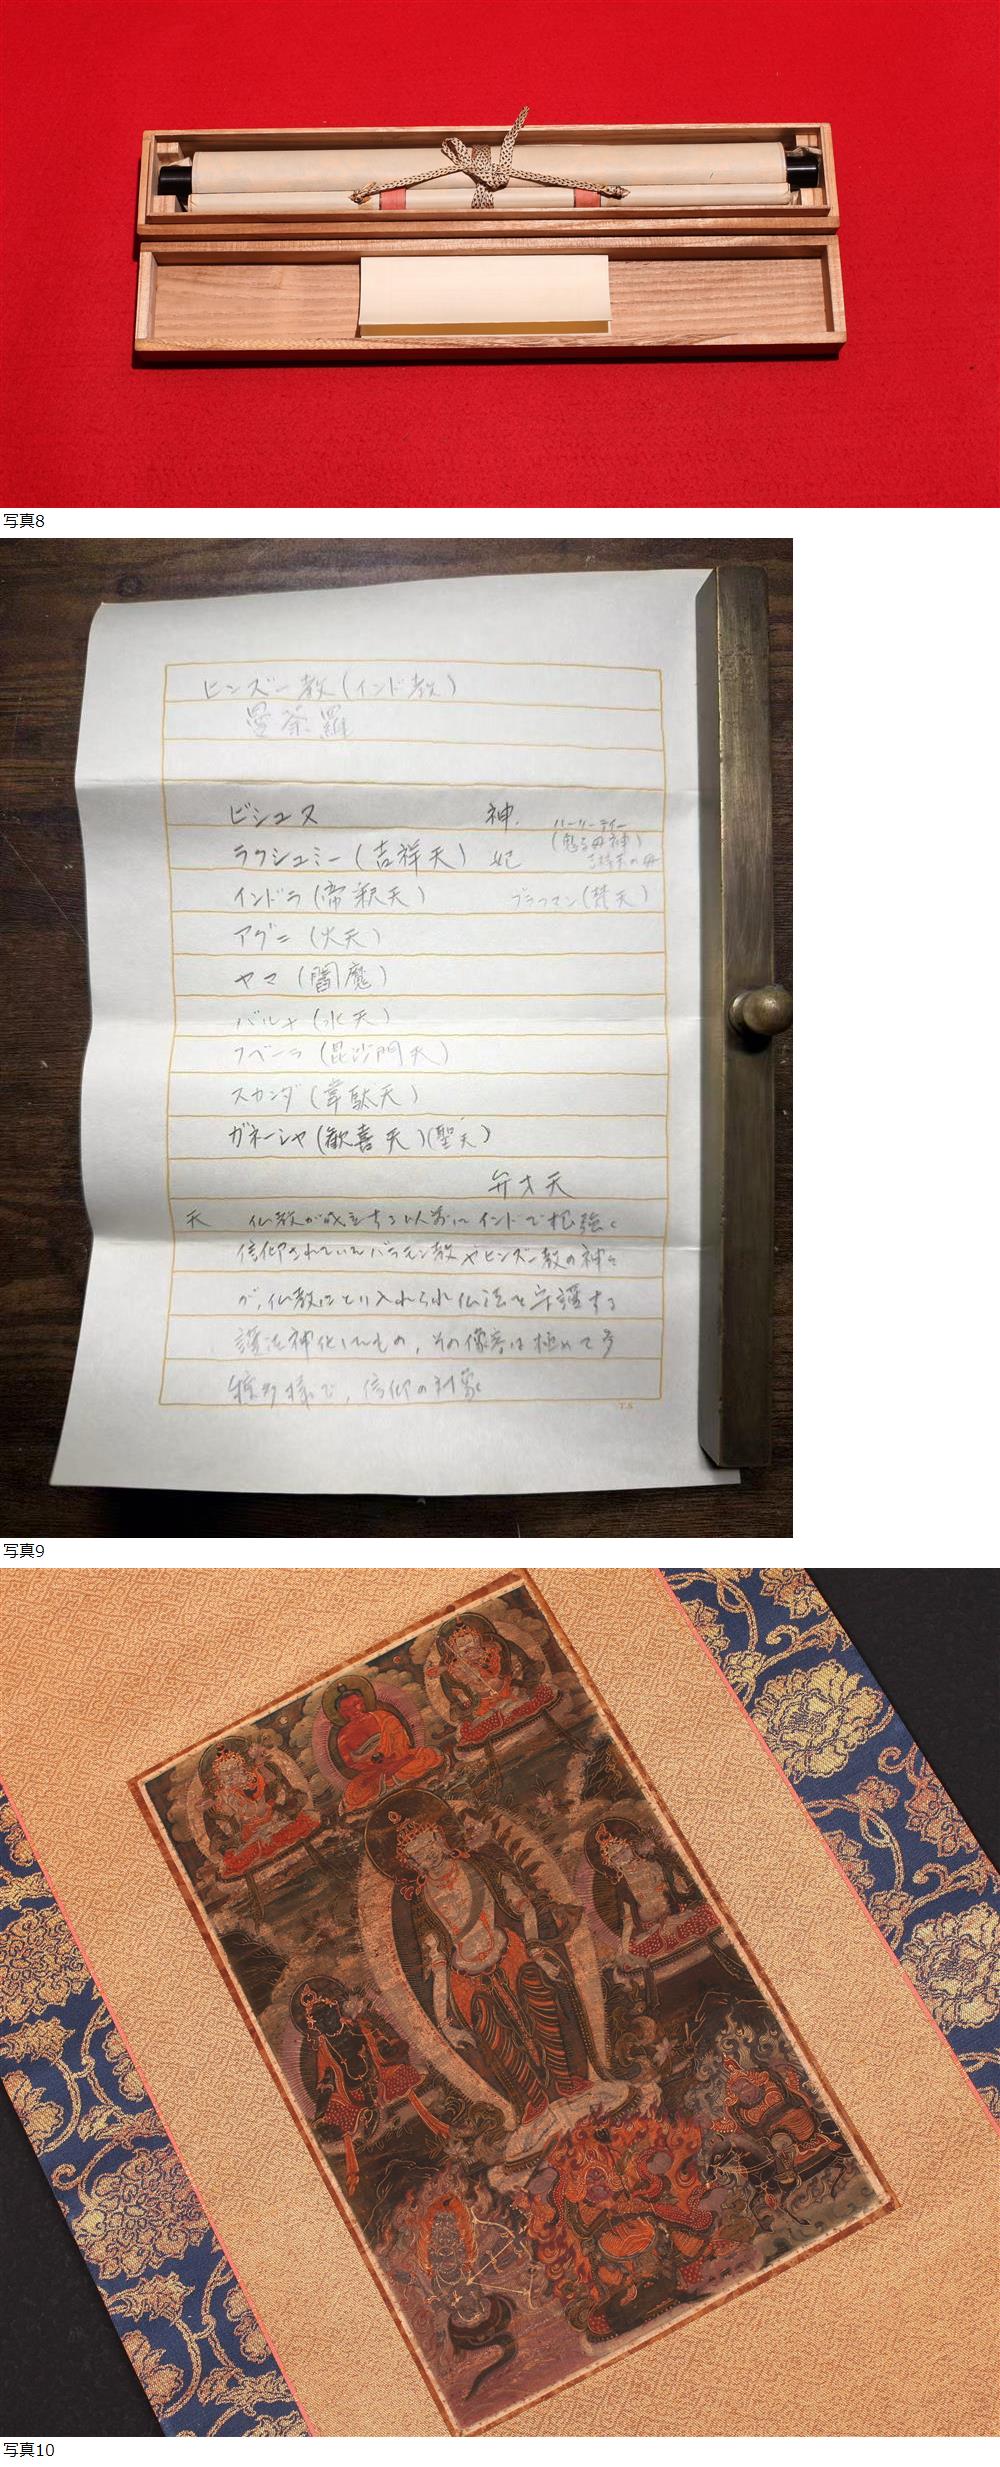 写真8
ヒンズー教(インド教)
曼荼羅
ビシュヌ 神.
ハーリーティー
ラクシュミー(吉祥天) 妃 (鬼子母神)
吉祥天の母
インドラ(帝釈天) ブラフマン(梵天)
アグニ(火天)
ヤマ(閻魔)
バルナ(水天)
クベーラ(毘沙門天)
スカンダ(韋駄天)
ガネーシャ(歓喜天)(聖天)
弁才天
天 仏教が成立する以前にインドで根強く
信仰されていたバラモン教やヒンズー教の神々
が,仏教にとり入れられ仏法を守護する
護法神化したもの,その像容は極めて多
種多様で,信仰の対象
T.S
写真9
写真10